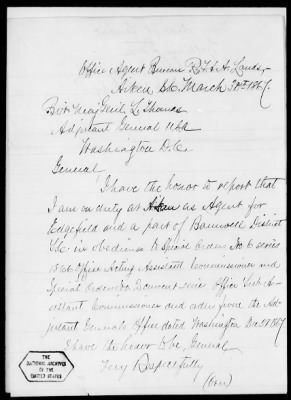 Office Agent Bureau R. F. & A. Lands,
Aiken S.C. March 30th 1867.
Bvt. Maj Genl L. Thomas
Adjutant General USA
Washington D.C.
General
I have the honor to report that
I am on duty at Aiken as Agent for
Edgefield and a part of Barnwell District
S.C. in obedience to Special Orders No 6 series
Office Acting Assistant Commissioner and
Special Orders series Office
Assistant Commissioner and order from the Ad-
jutant General's Office dated Washington 1867
I have the honor to be, General
Very Respectfully
(Over)
THE
NATIONAL ARCHIVES
OF THE
UNITED STATES